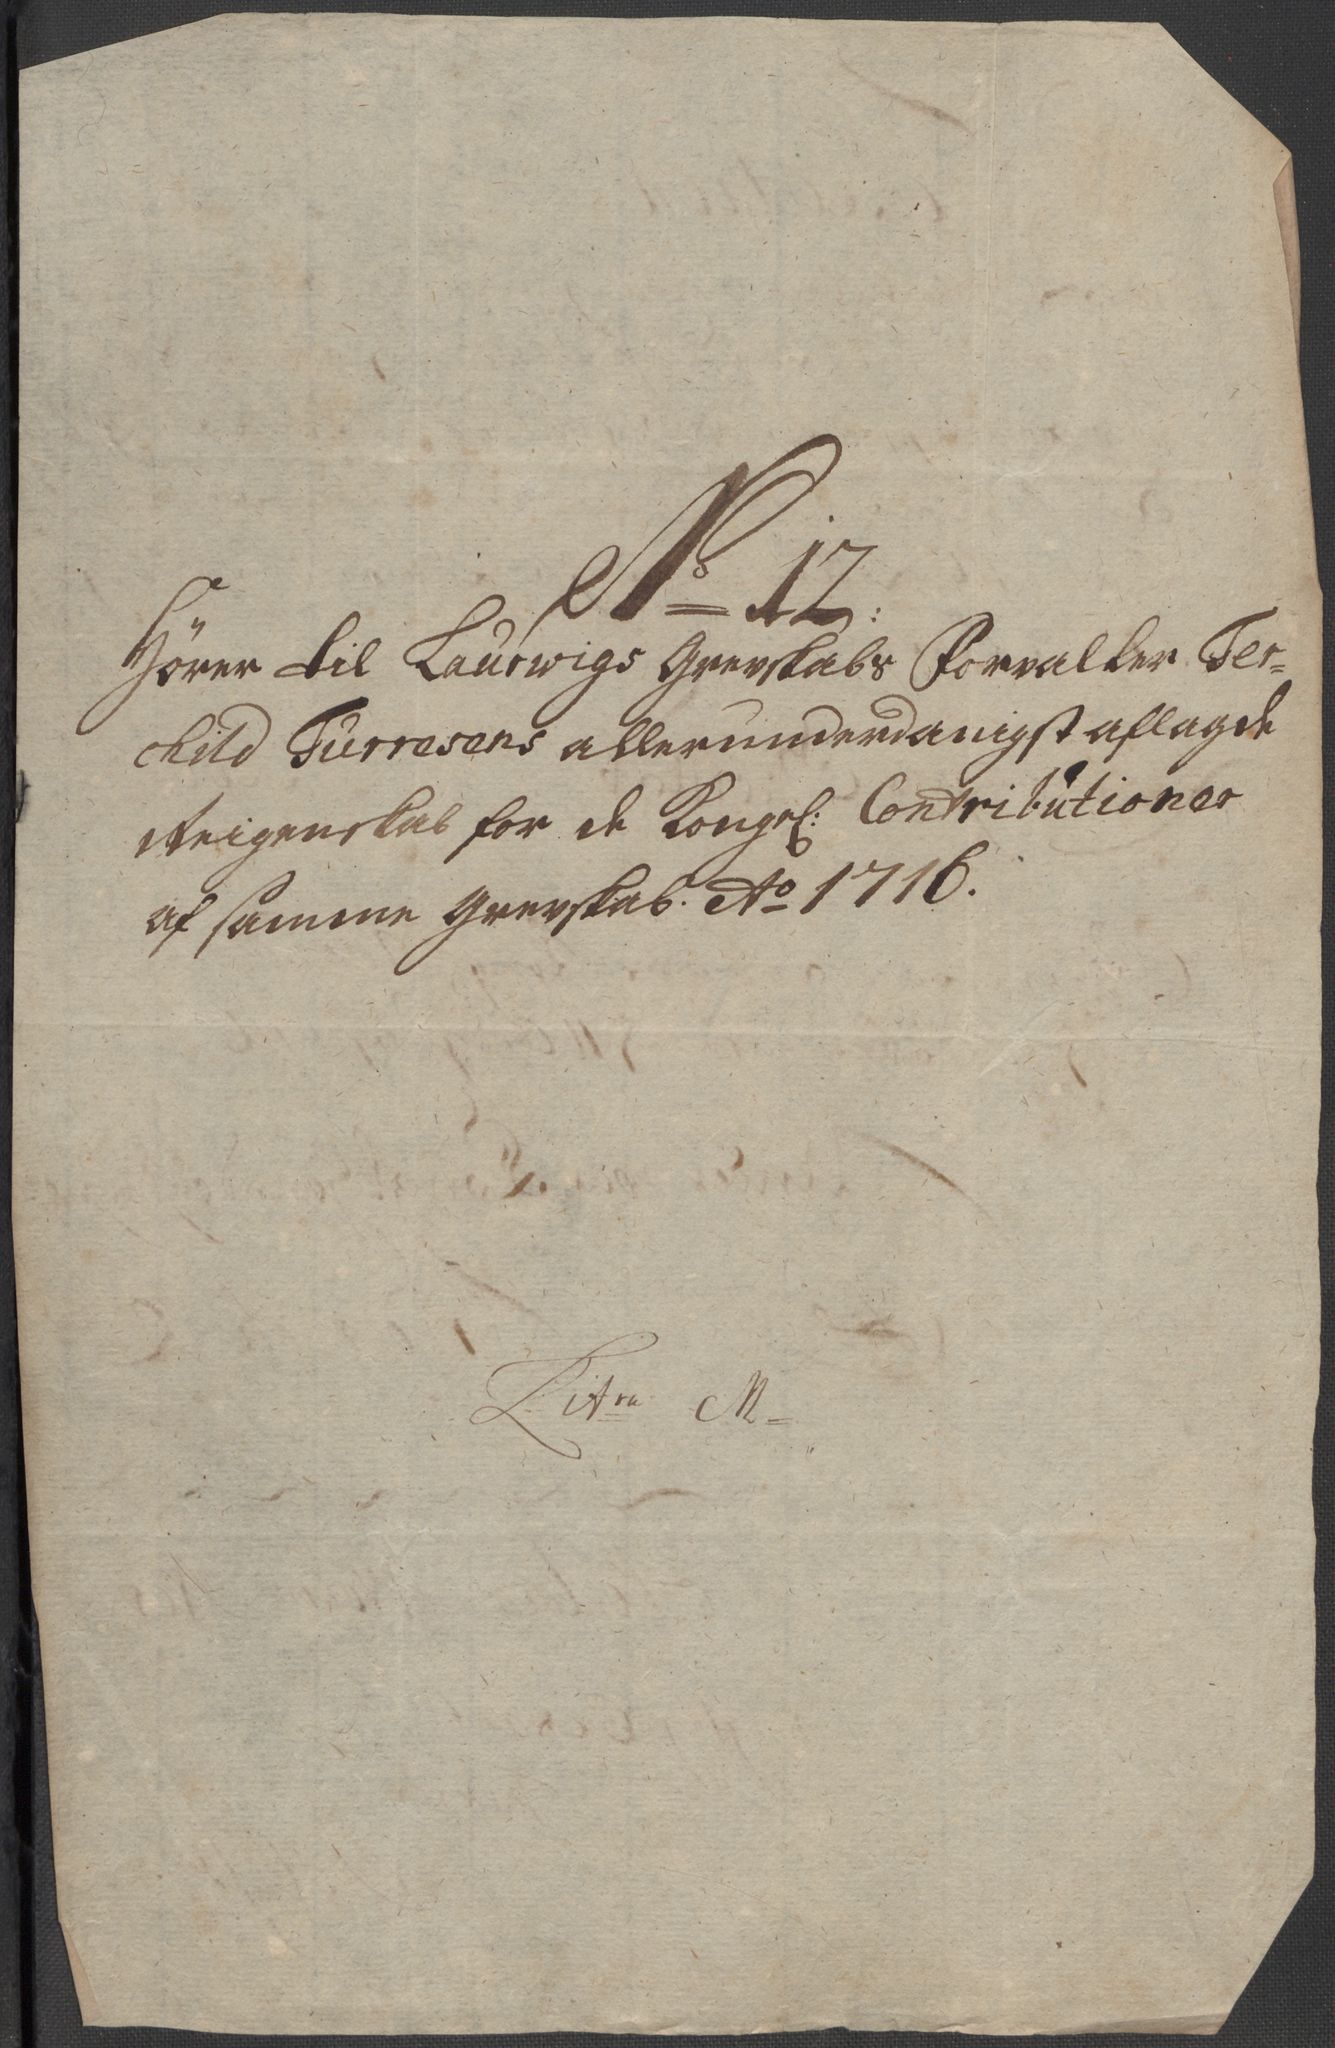 No 12:
Hörer til Laurwigs Grevskabs Forvalter Ter-
child Turresens allerunderdanigst aflagde
Reigenskab for de Kongel: Contributioner
af samme Grevskab. Ao 1716.
Litra M